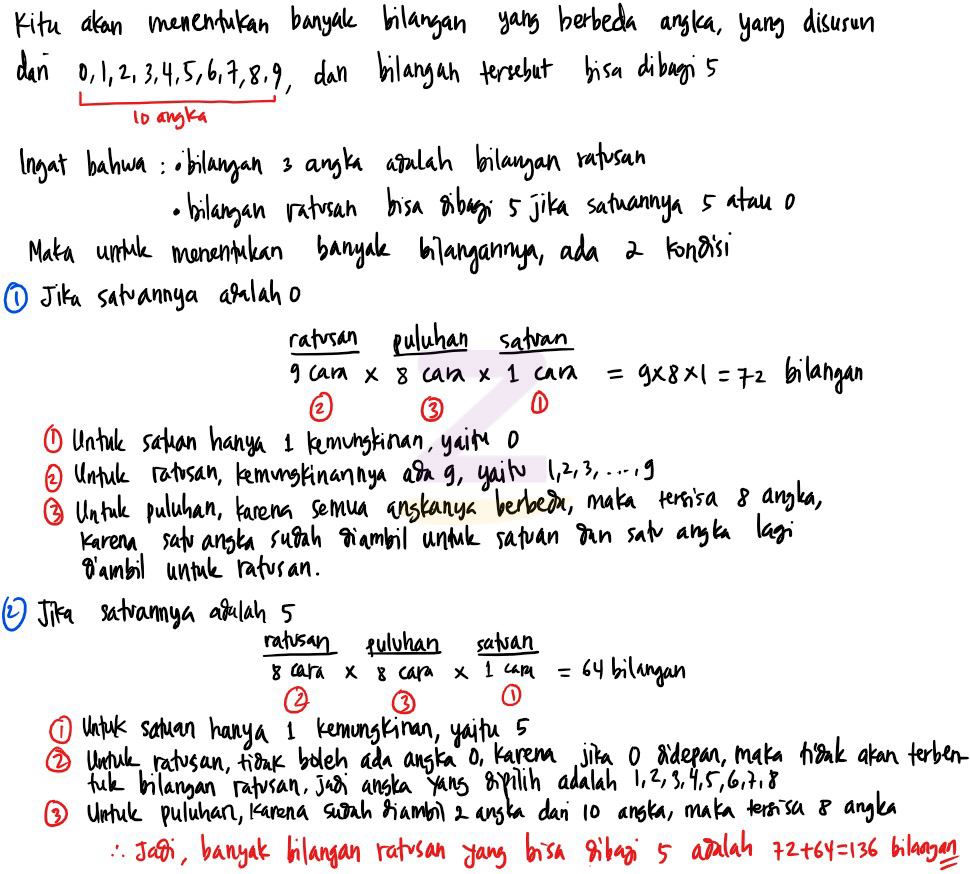 Kita akan menentukan banyak bilangan yang berbeda angka, yang disusun
dari 0,1,2,3,4,5,6,7,8,9, dan bilangan tersebut bisa dibagi 5
10 angka
Ingat bahwa : • bilangan 3 angka adalah bilangan ratusan
• bilangan ratusan bisa dibagi 5 jika satuannya 5 atau 0
Maka untuk menentukan banyak bilangannya, ada 2 kondisi
① Jika satuannya adalah 0
ratusan puluhan satuan
9 cara × 8 cara × 1 cara = 9×8×1 = 72 bilangan
② ③ ①
① Untuk satuan hanya 1 kemungkinan, yaitu 0
② Untuk ratusan, kemungkinannya ada 9, yaitu 1,2,3, ...., 9
③ Untuk puluhan, karena semua angkanya berbeda, maka tersisa 8 angka,
karena satu angka sudah diambil untuk satuan dan satu angka lagi
diambil untuk ratusan.
② Jika satuannya adalah 5
ratusan puluhan satuan
8 cara × 8 cara × 1 cara = 64 bilangan
② ③ ①
① Untuk satuan hanya 1 kemungkinan, yaitu 5
② Untuk ratusan, tidak boleh ada angka 0, karena jika 0 didepan, maka tidak akan terben-
tuk bilangan ratusan, jadi angka yang dipilih adalah 1,2,3,4,5,6,7,8
③ Untuk puluhan, karena sudah diambil 2 angka dari 10 angka, maka tersisa 8 angka
∴ Jadi, banyak bilangan ratusan yang bisa dibagi 5 adalah 72+64=136 bilangan